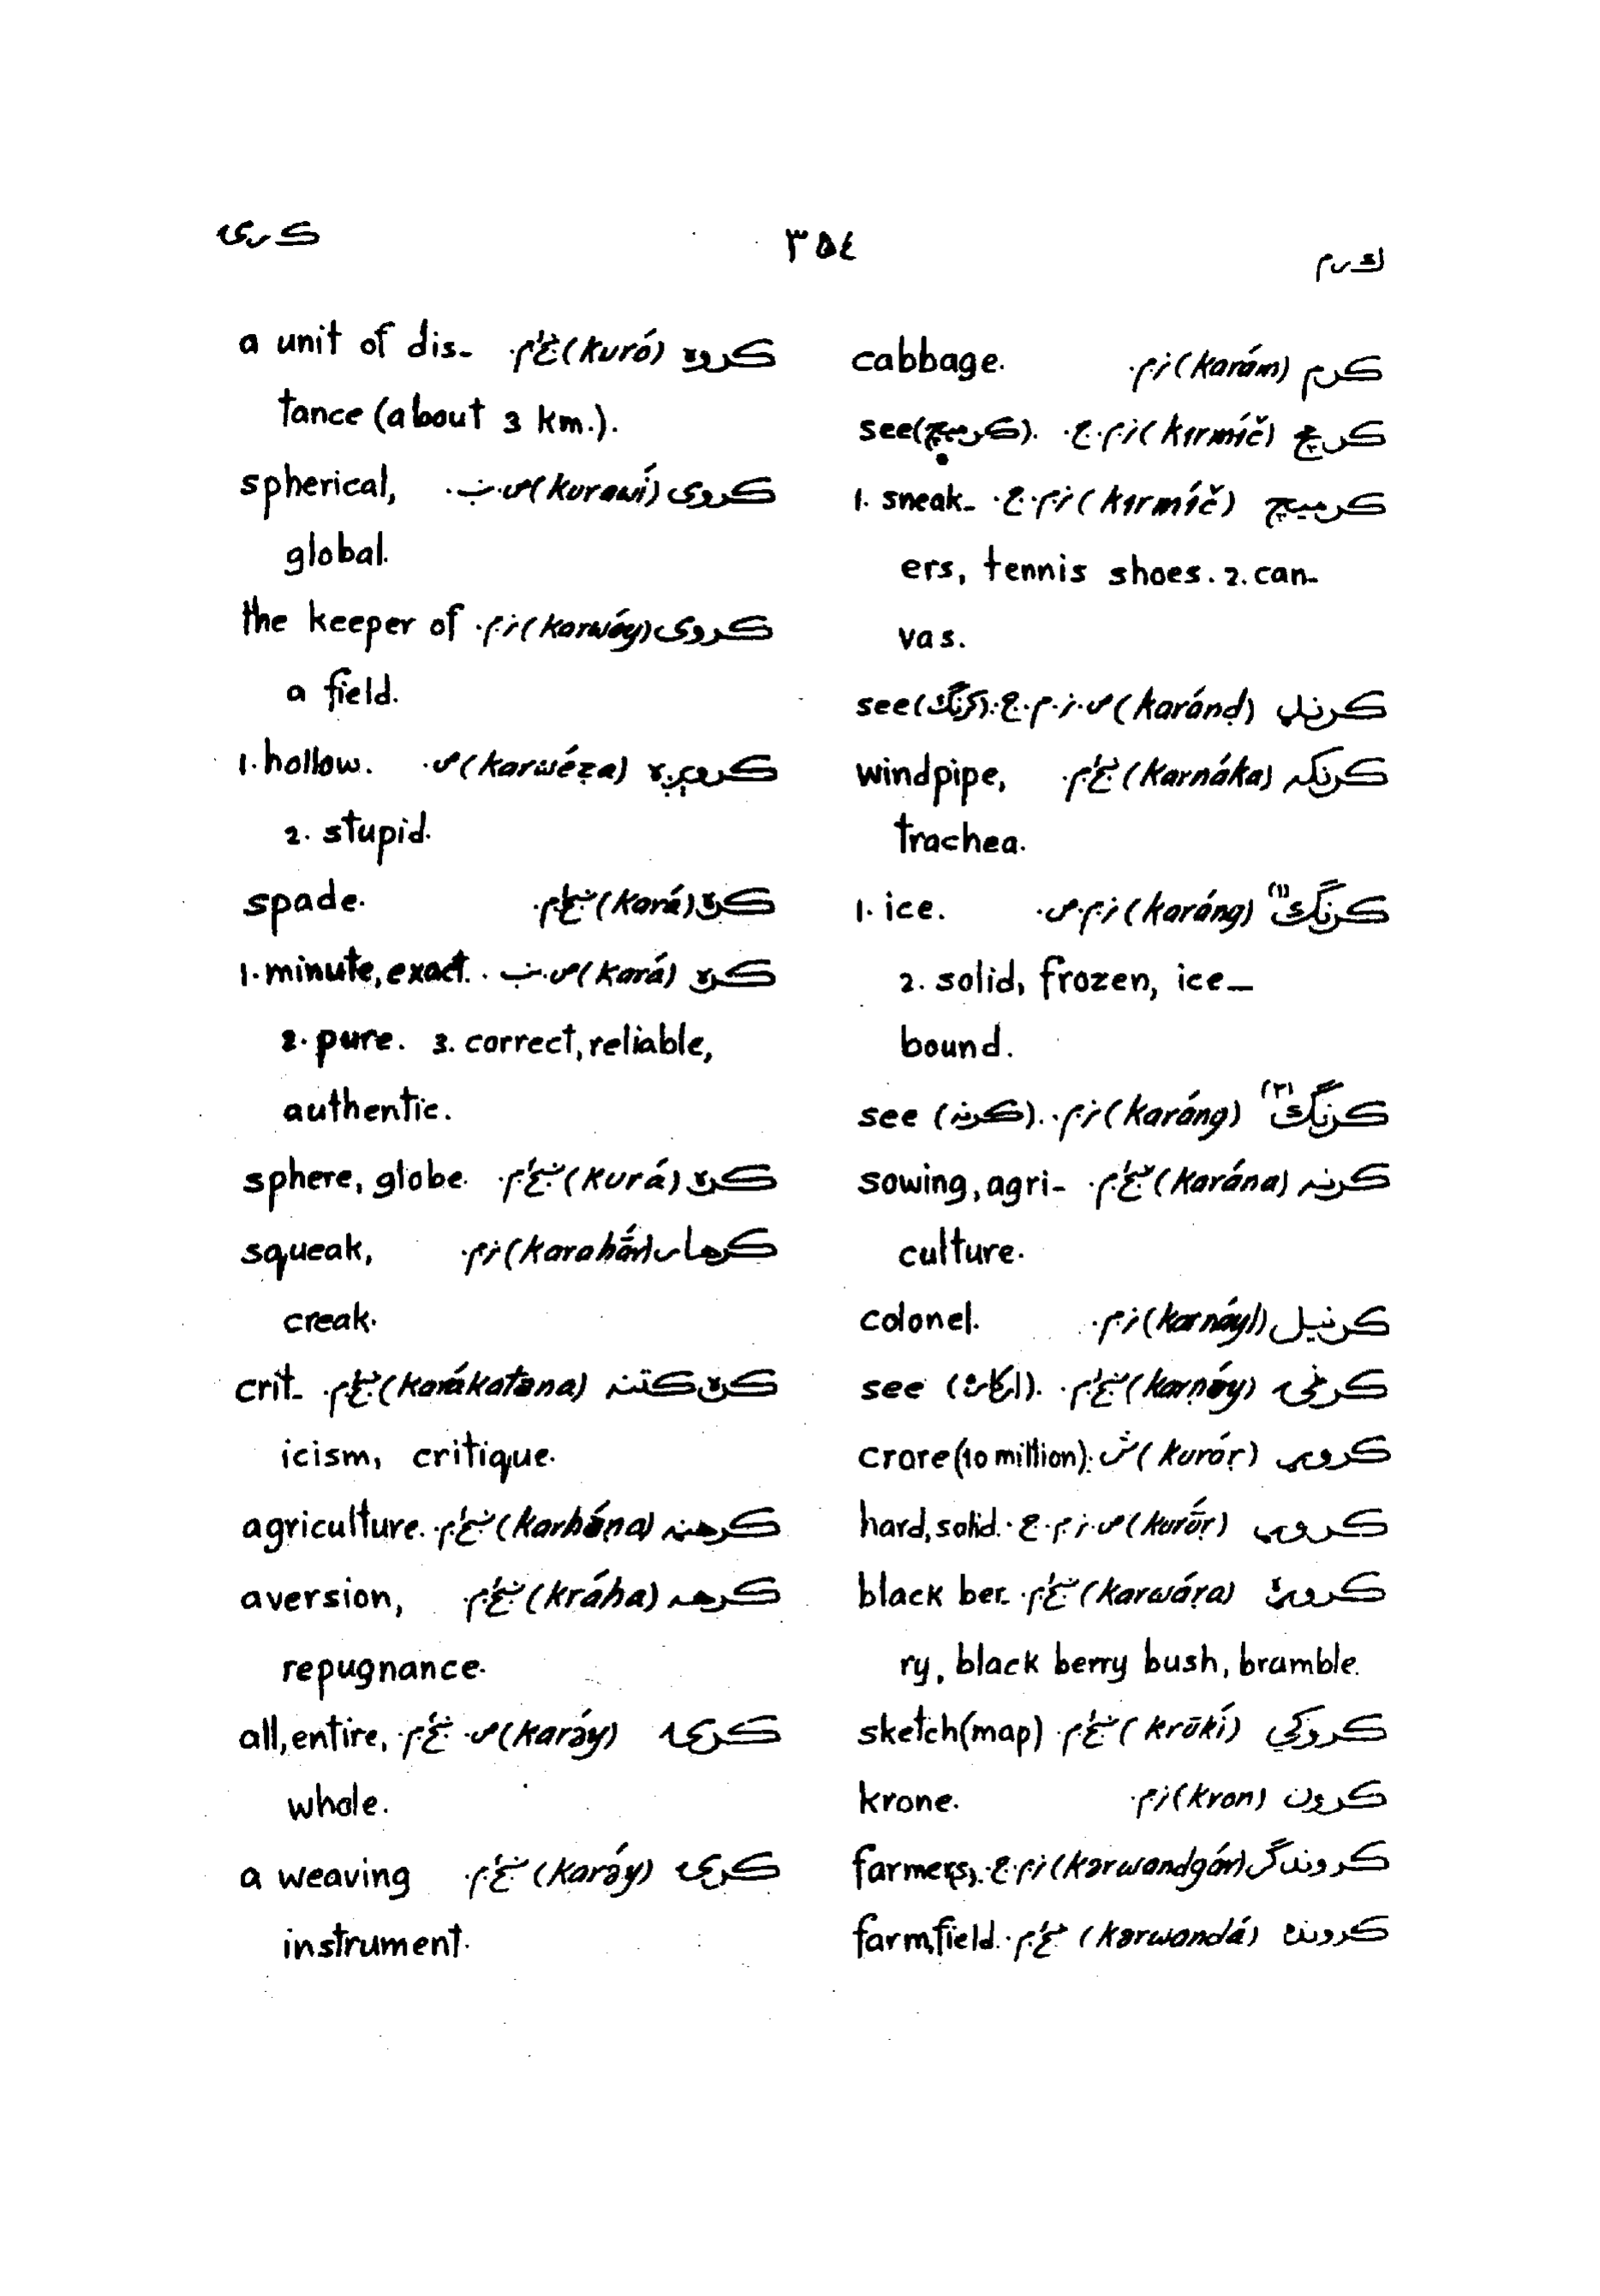 كرم
٣٥٤
كرى
كرم (karám) ز.م. cabbage.
كرمچ (kırmíč) ز.م.ج. see (كرميچ).
كرميچ (kırmíč) ز.م.ج. 1. sneak-
ers, tennis shoes. 2. can-
vas.
كرنډ (karánḍ) ص.ز.م.ج. see (كرنګ).
كرنكه (karnáka) ښځ.م. windpipe,
trachea.
كرنګ (١) (karáng) ز.م.ص. 1. ice.
2. solid, frozen, ice-
bound.
كرنګ (٢) (karáng) ز.م. see (كرنه).
كرنه (karána) ښځ.م. sowing, agri-
culture.
كرنيل (karnáyl) ز.م. colonel.
(karṇəy) ښځ.م. see
كروړ (kuróṛ) ش. crore (10 million).
كروړ (kurṓṛ) ص.ز.م.ج. hard, solid.
كروړه (karwáṛa) ښځ.م. black ber-
ry, black berry bush, bramble.
كروكي (krōkí) ښځ.م. sketch (map)
كرون (kron) ز.م. krone.
كروندګر (kərwandgár) ز.م.ج. farmer(s).
كرونده (kərwandá) ښځ.م. farm, field.
كروه (kuró) ښځ.م. a unit of dis-
tance (about 3 km.).
كروى (kurawí) ص.ب. spherical,
global.
كروى (karwáy) ز.م. the keeper of
a field.
كروېړه (karwéṛa) ص. 1. hollow.
2. stupid.
كره (kará) ښځ.م. spade.
كره (kará) ص.ب. 1. minute, exact.
2. pure. 3. correct, reliable,
authentic.
كره (kurá) ښځ.م. sphere, globe.
كرهار (karahā́r) ز.م. squeak,
creak.
كره كتنه (karákatəna) ښځ.م. crit-
icism, critique.
كرهڼه (karhə́ṇa) ښځ.م. agriculture.
كرهه (kráha) ښځ.م. aversion,
repugnance.
كرۍ (karə́y) ص. ښځ.م. all, entire,
whole.
كرۍ (karə́y) ښځ.م. a weaving
instrument.